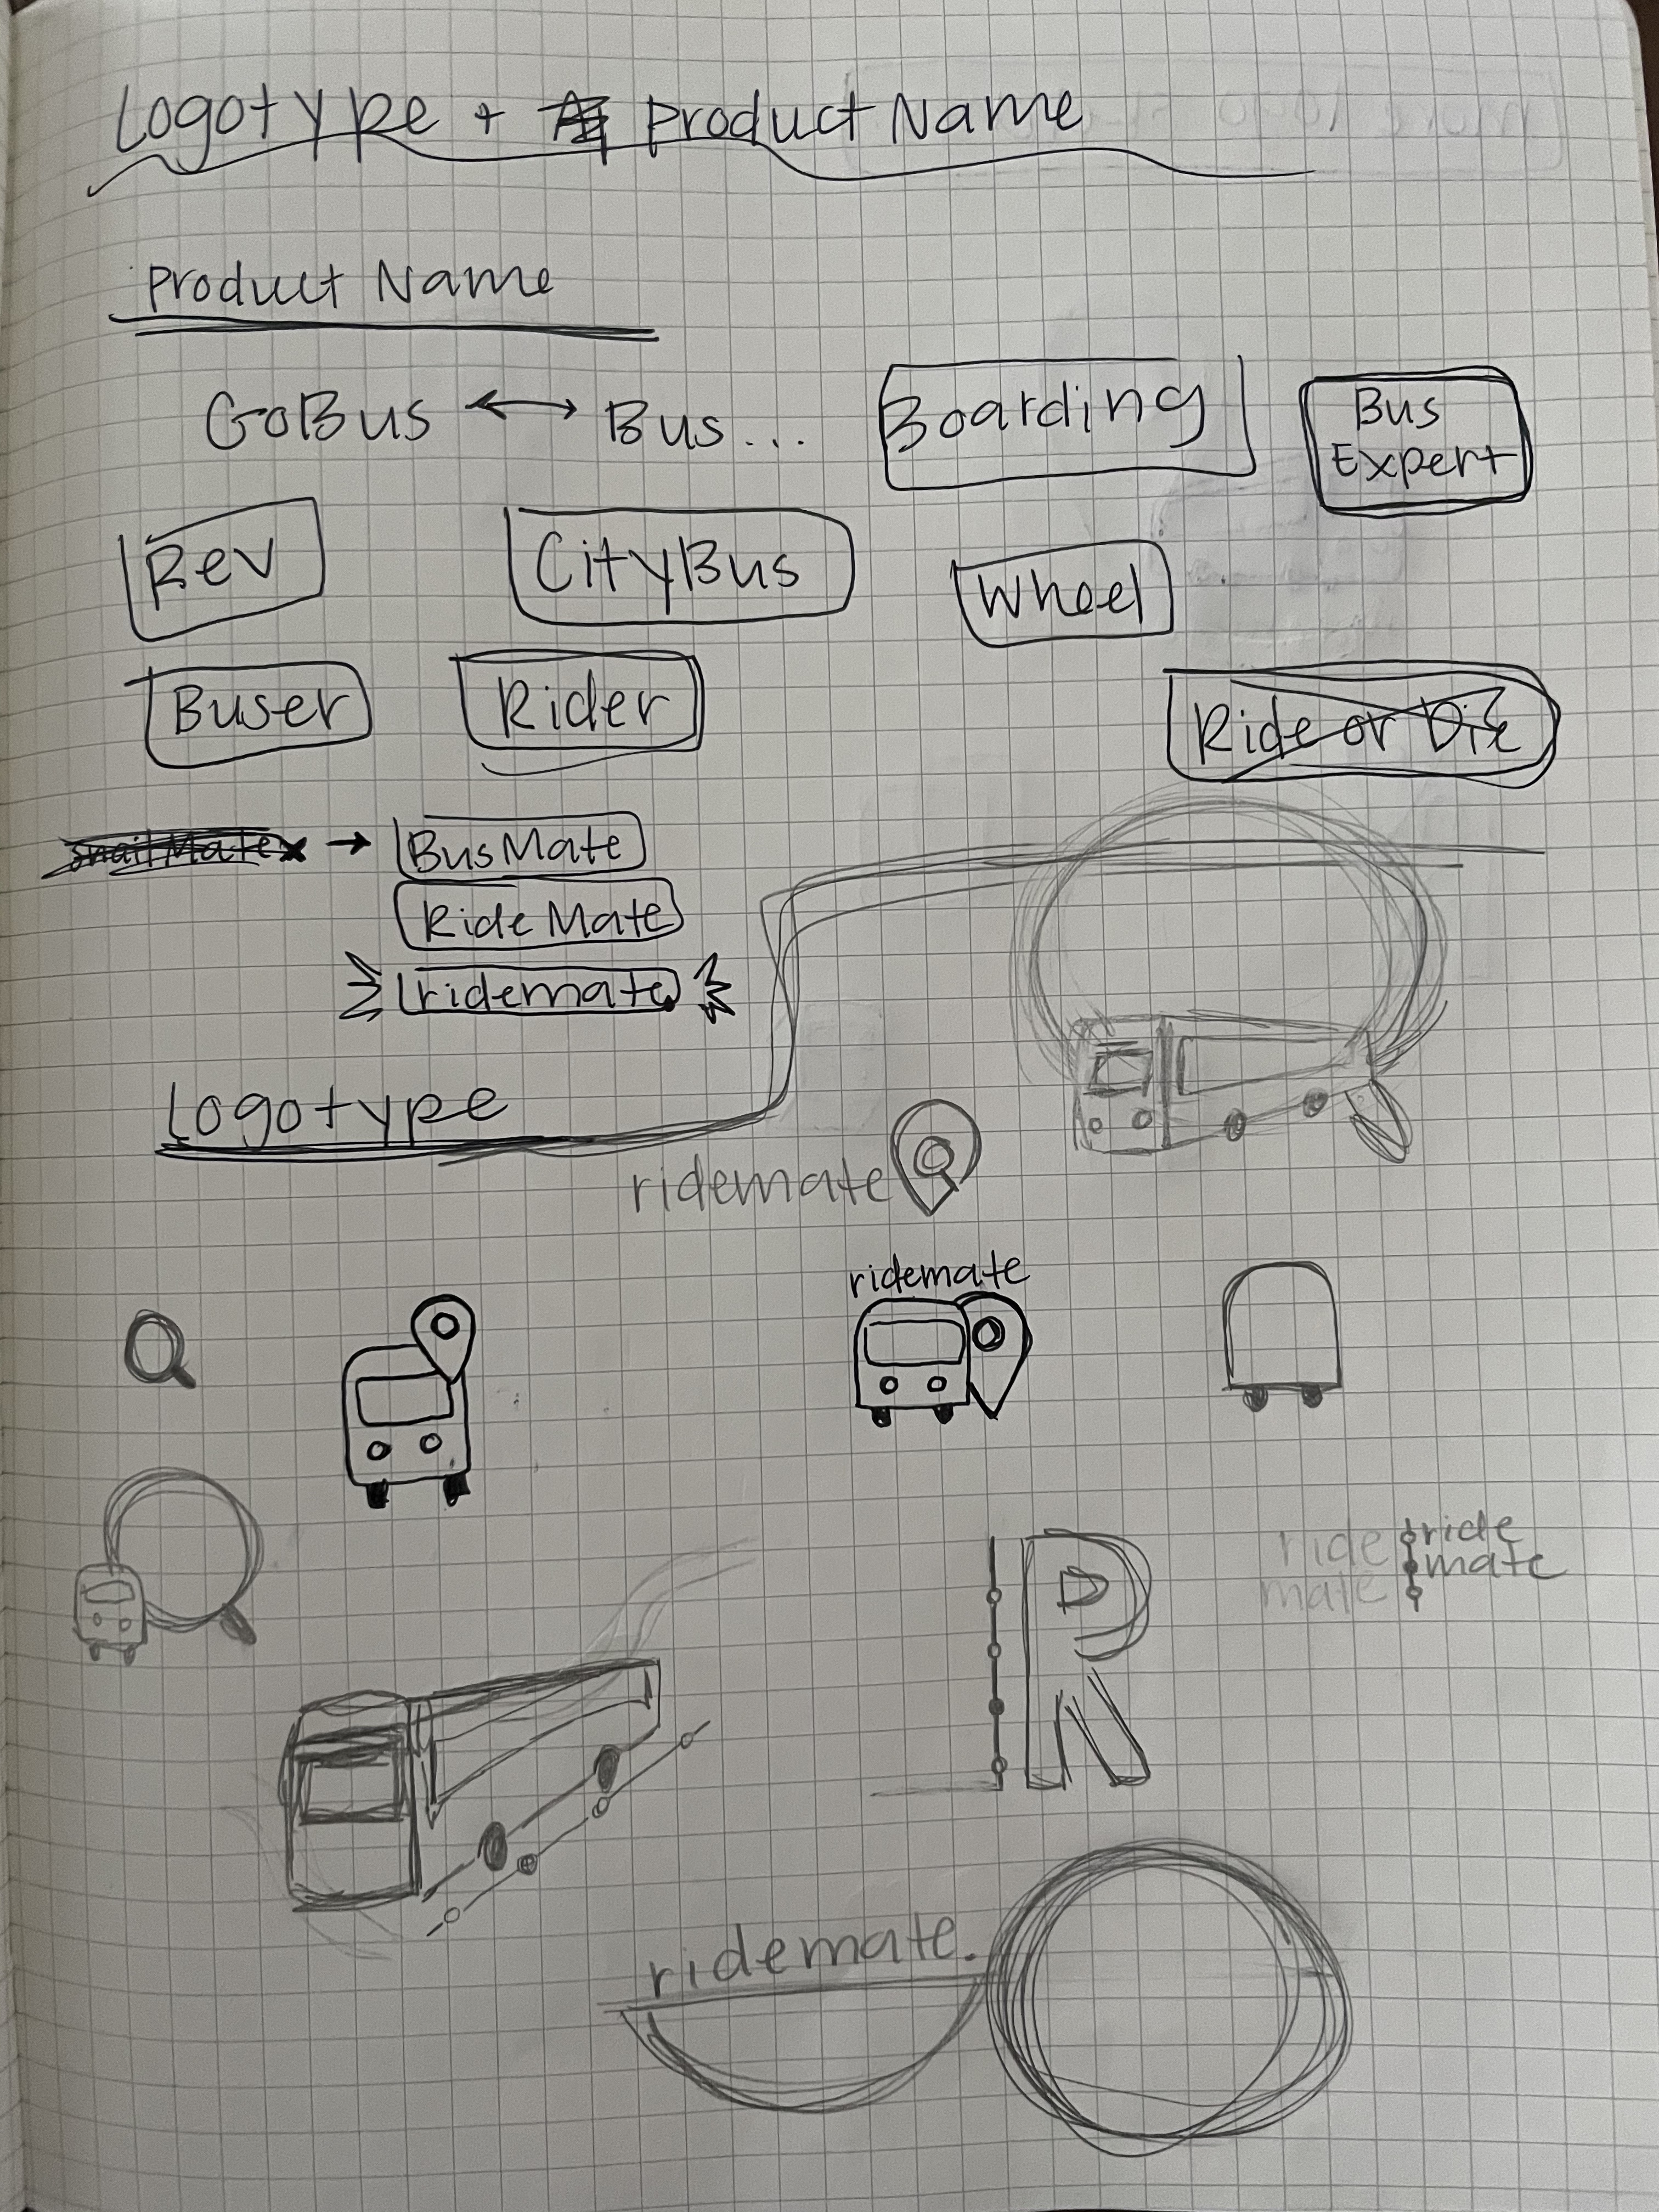 Logotype + Product Name
Product Name
GoBus ↔ Bus...
Boarding
Bus
Expert
Rev
CityBus
Wheel
Buser
Rider
Ride or Die
snailMate → BusMate
Ride Mate
ridemate
Logotype
ridemate
ridemate
R
ride
mate
ride
mate
ridemate.